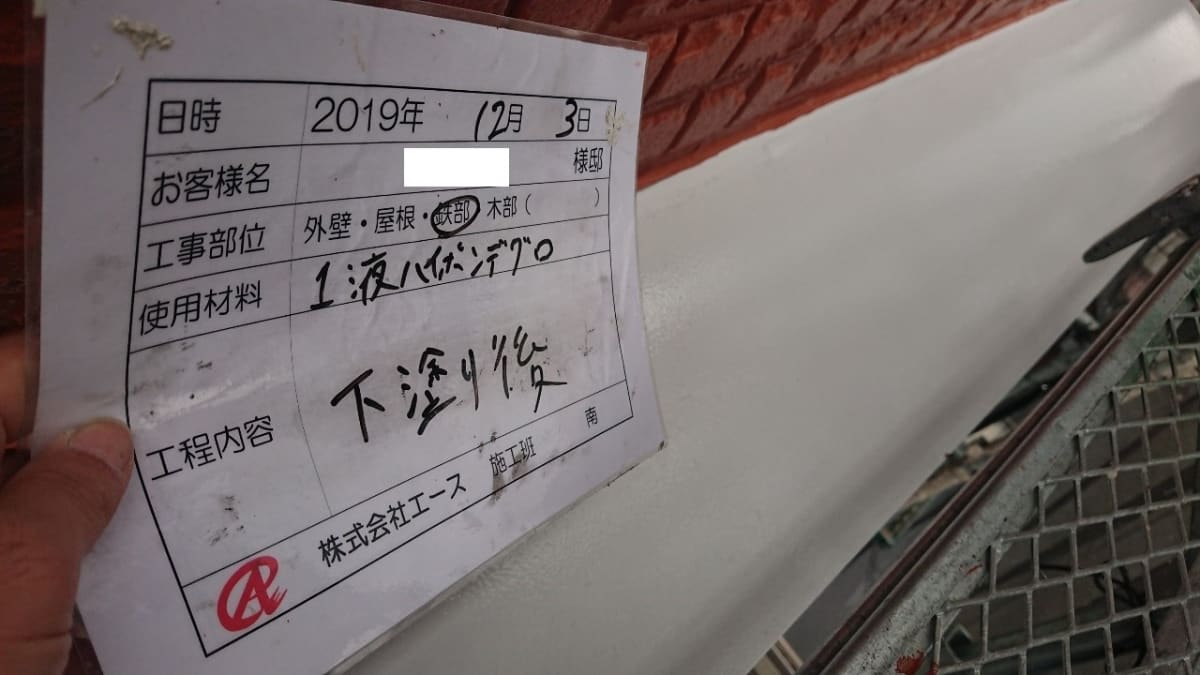 日時 2019年 12月 3日
お客様名 様邸
工事部位 外壁・屋根・鉄部 木部( )
使用材料 1液ハイポンデグロ
工程内容 下塗り後
株式会社エース 施工班 南